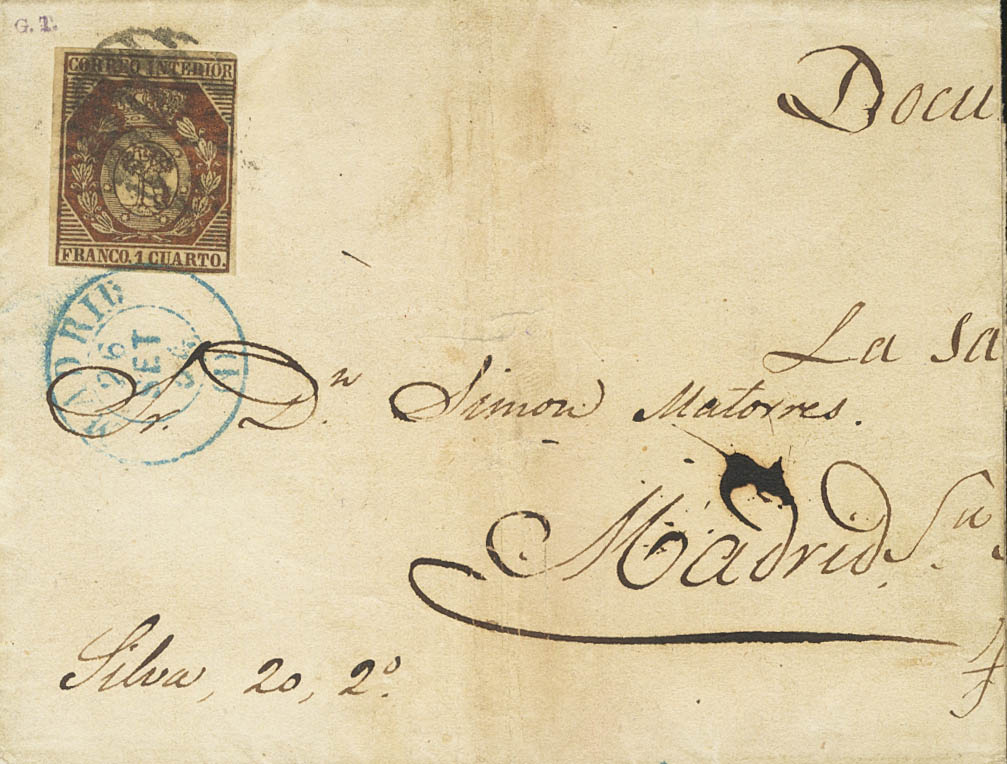 G. T.
CORREO INTERIOR
FRANCO. 1 CUARTO.
MADRID
26
SET
Docu
La sa
Sr. Dn. Simon Matorres.
Madrid
Silva, 20, 2º.